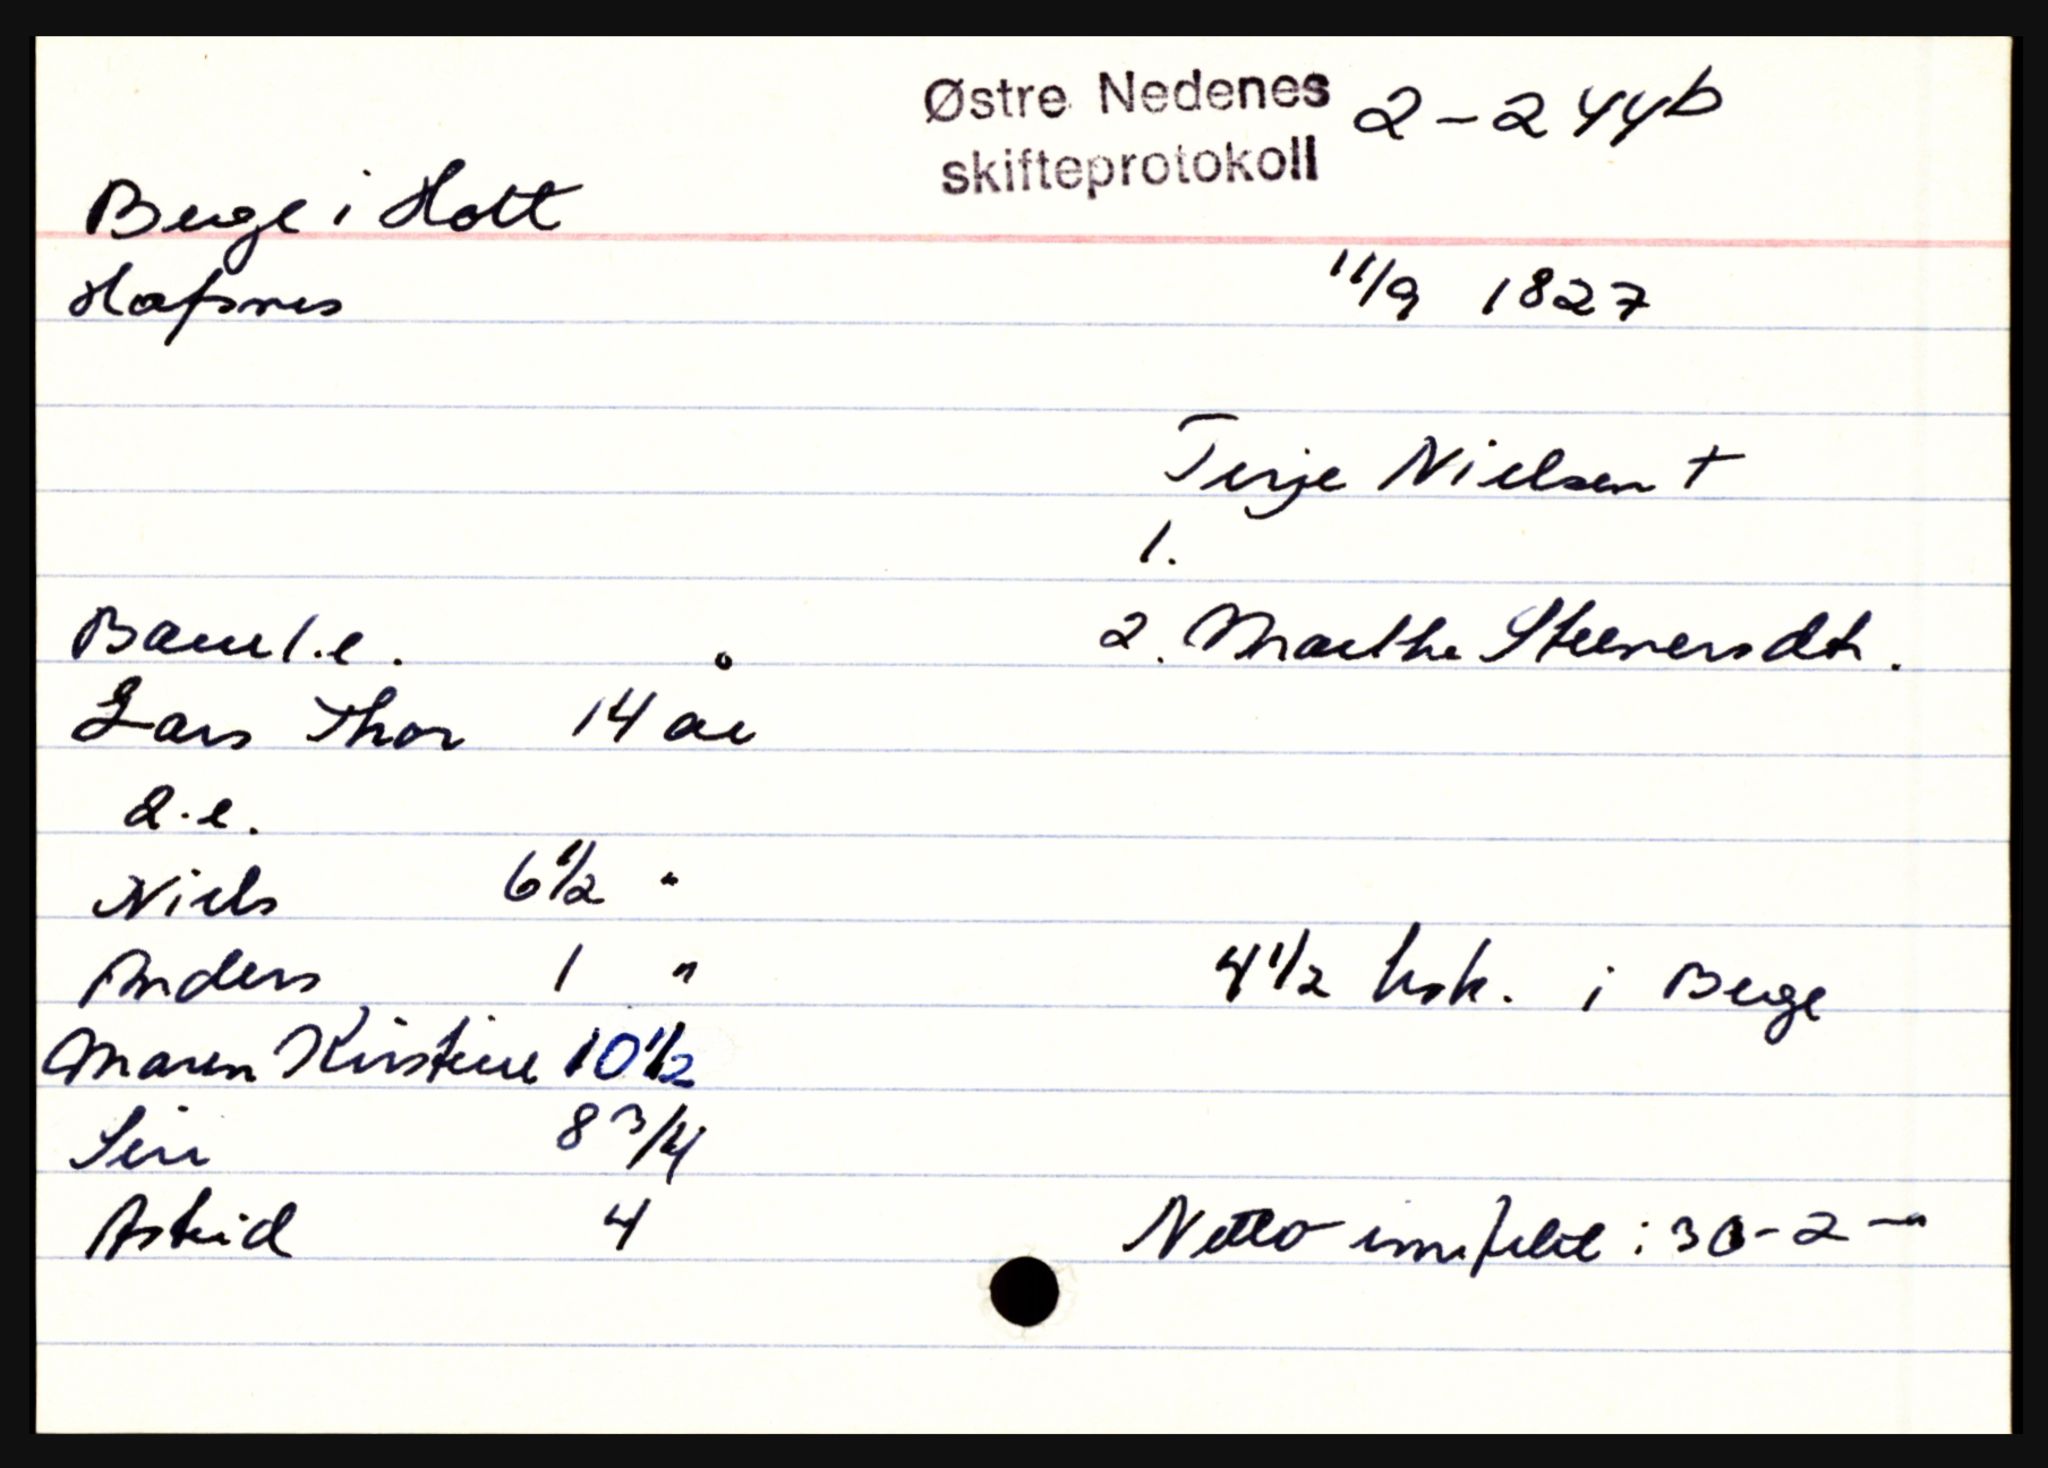 Østre Nedenes 2-244b
skifteprotokoll
Berge i Holt
11/9 1827
Terje Nielsen +
1.
Barn 1.e.
2. Marthe Steenersdtr.
Lars Thor 14 år
2.e.
Niels 6 1/2 "
Anders 1 "
4 1/2 hsk. i Berge
Maren Kirstine 10 1/2
Siri 8 3/4
Astrid 4
Netto : 30-2-"